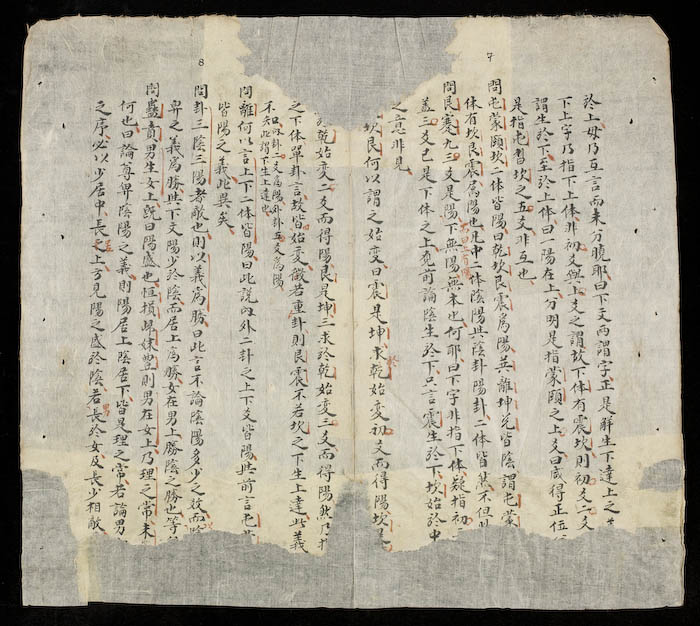 7
於上毋乃互言而未分曉耶曰下文兩謂字正是解生下達上之
下上字乃指下上體非初爻與上爻之謂故下體有震坎則初爻二爻
謂生於下至於上體曰一陽在上分明是指蒙頤之上爻曰咸得正位
是指屯習坎之五爻非互也
問屯蒙頤坎二體皆陽曰乾坎艮震爲陽其離坤兌皆陰謂屯蒙
体有坎艮震爲陽也先中二体陰陽與陰卦陽卦二体皆
問艮蹇九三爻是陽下無陽無本也何耶曰下字非指下体疑指初
蓋三爻已是下体之上竟前論陰生於下只言震生於下坎始於中
之意非見
坎艮何以謂之始變曰震是坤求乾始变初爻而得陽坎是
乾始变二爻而得陽艮是坤三求於乾始变三爻而得陽然乃指
之下体單卦言故皆始变徵若重卦則艮震不若坎之下生上達此義
不
問離何以言上下二體皆陽曰此説内外二卦之上下爻皆陽與前言
皆陽之義此異矣
8
問卦三陰三陽者敵也則以義爲勝曰此言不論陰陽多少之敌而
卑之義爲勝與下文陽少於陰而居上爲勝女在男上勝陰之勝也等
問蠱賁男生女上既曰陽盛也恒損歸妹豊則男在女上乃理之常未
何也曰論尊卑陰陽之義則陽居上陰居下皆是理之常若論男
之序必以少居中長之上方見陽之盛於陰若長於女及長少相敵